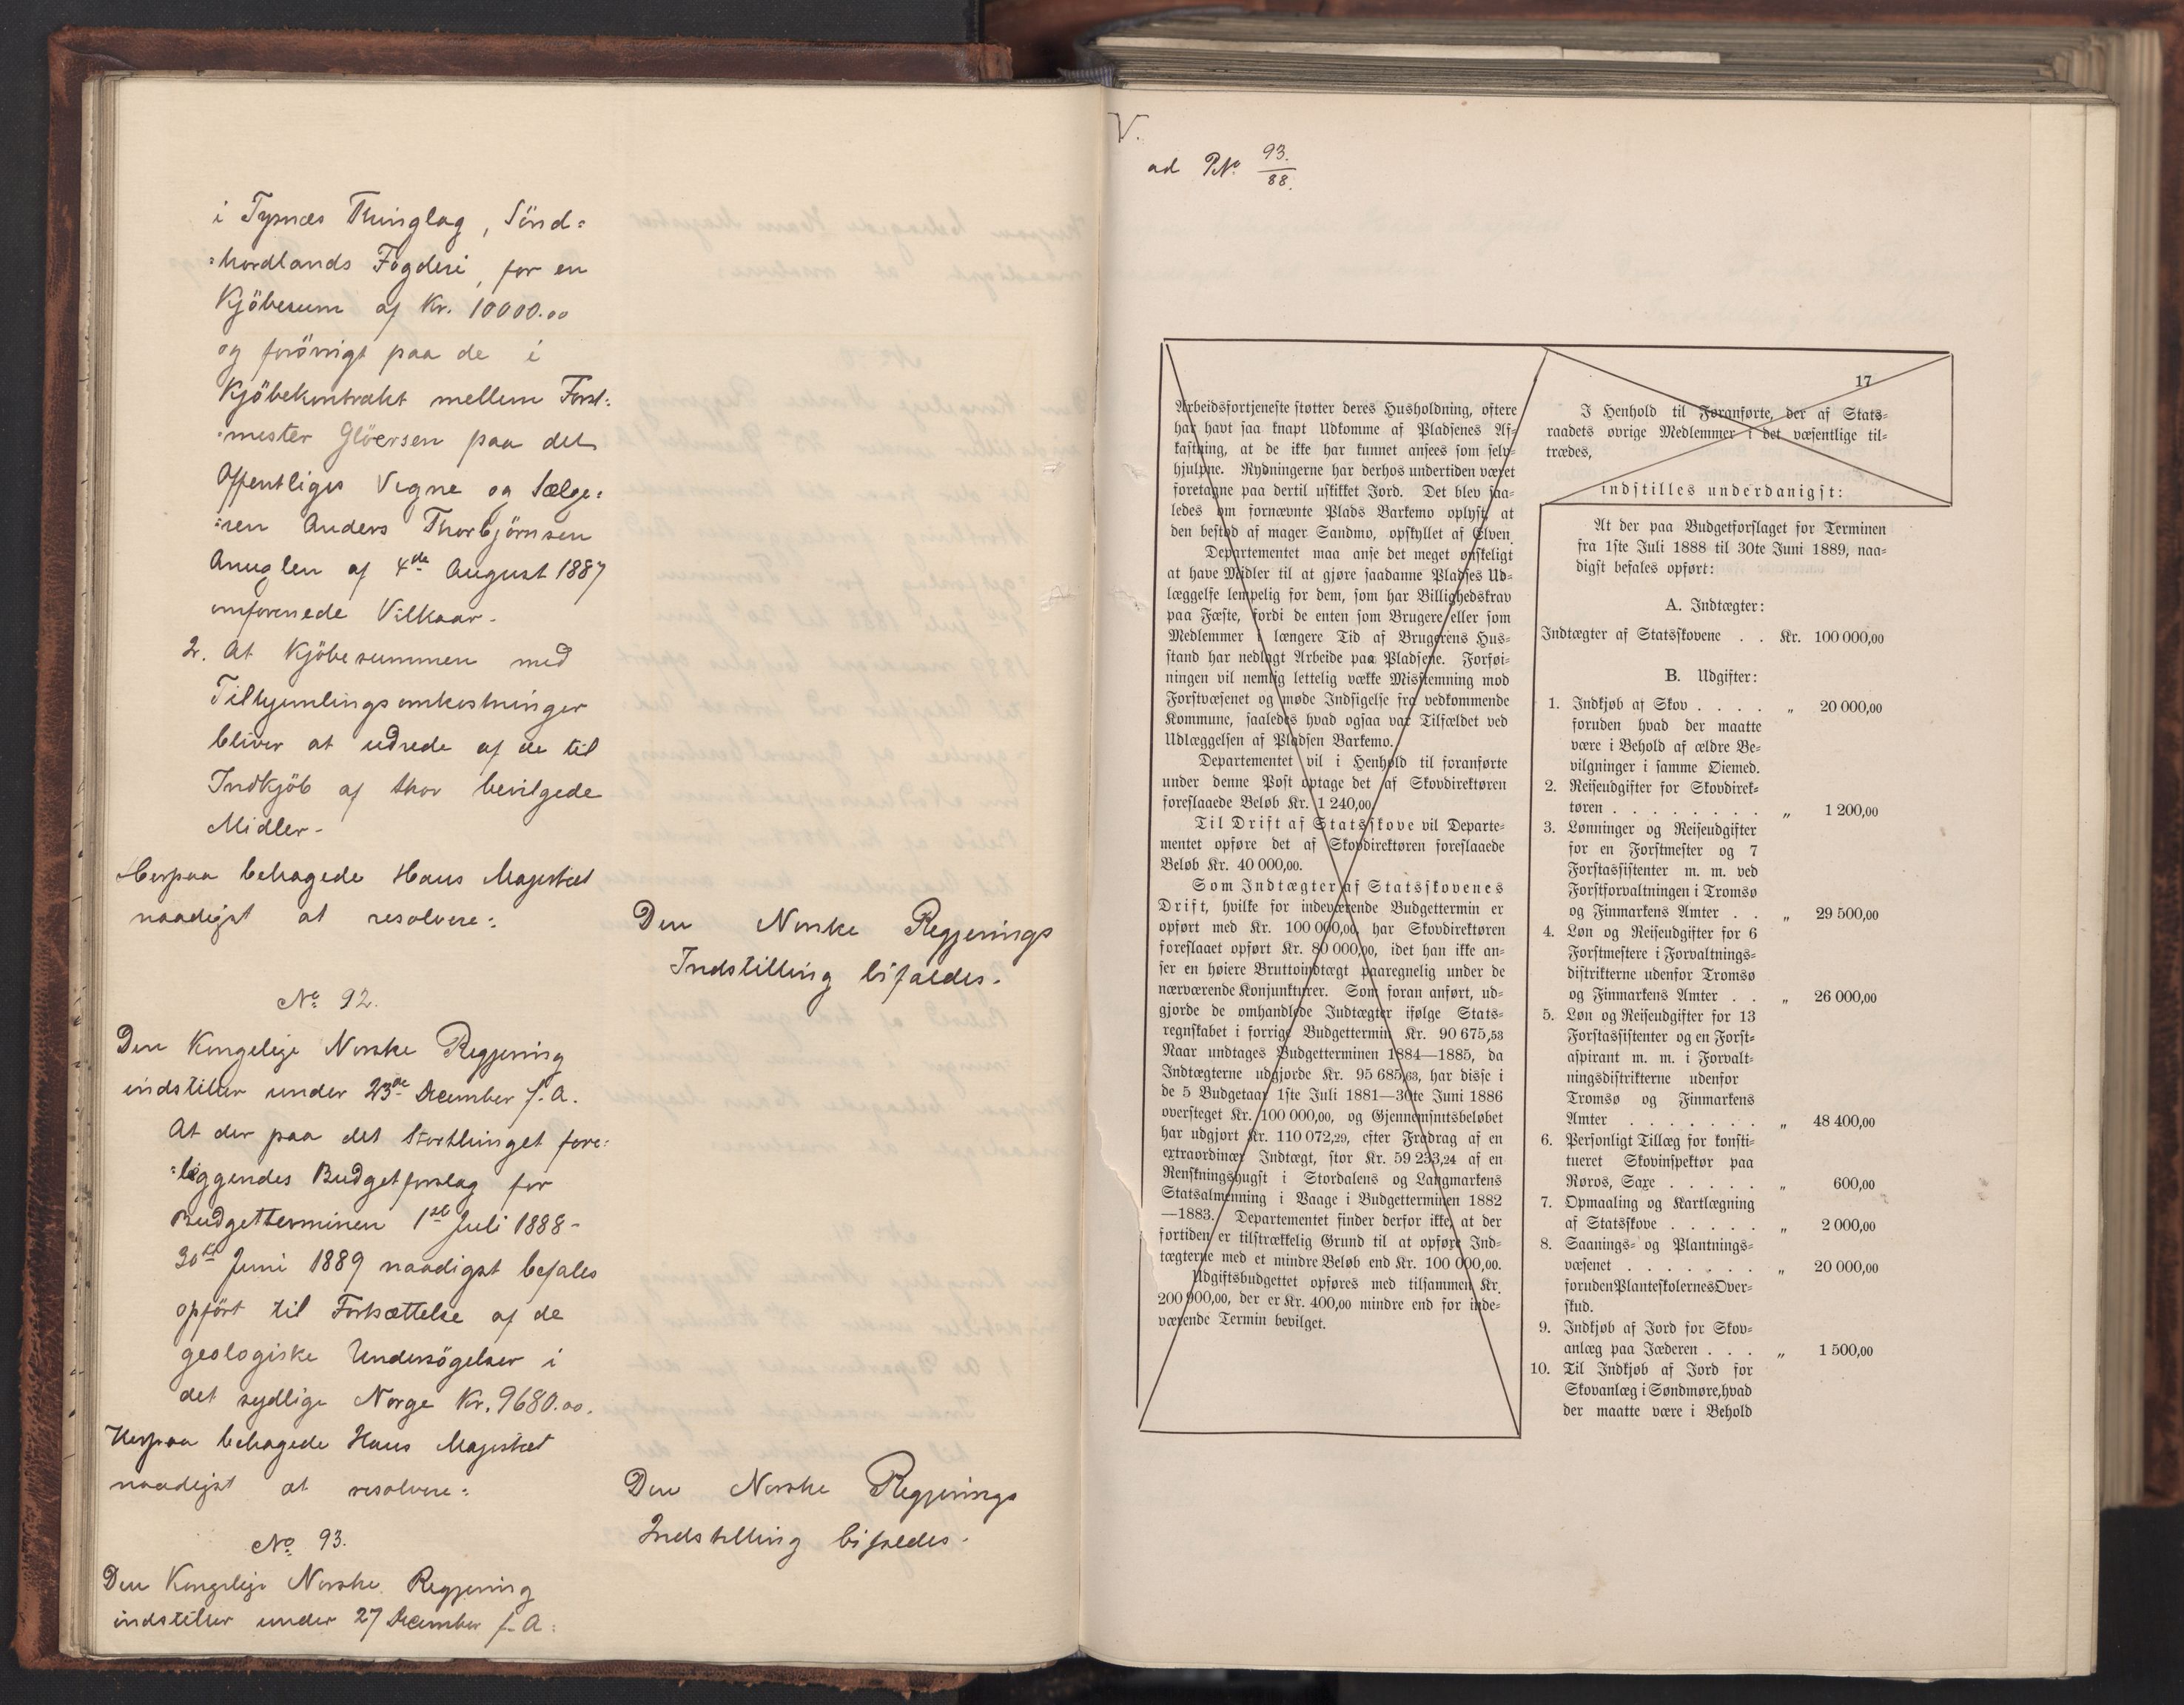 i Tysnæs Thinglag, Sönd=
=hordlands Fogderi, for en
Kjöbesum af Kr. 10000.00
og forövrigt paa de i
Kjöbekontrakt mellem Forst=
=mester Glöersen paa det
Offentliges Vegne og Sælge=
=ren Anders Thorbjörnsen
Anuglen af 4de August 1887
omforenede Vilkaar.
2. At Kjöbesummen med
Tilhjemlingsomkostninger
bliver at udrede af de til
Indkjöb af Skov bevilgede
Midler.
Herpaa behagede Hans Majestæt
naadigst at resolvere:
Den Norske Regjerings
Indstilling bifaldes.
No. 92.
Den Kongelige Norske Regjering
indstiller under 23de December f. A.
At der paa det Storthinget fore=
=liggendes Budgetforslag for
Budgetterminen 1ste Juli 1888-
30te Juni 1889 naadigst befales
opfört til Fortsættelse af de
geologiske Undersögelser i
det sydlige Norge Kr. 9680.00.
Herpaa behagede Hans Majestæt
naadigst at resolvere:
Den Norske Regjerings
Indstilling bifaldes.
No. 93.
Den Kongelige Norske Regjering
indstiller under 27 December f. A:
V.
ad PNo. 93./88.
Arbeidsfortjeneste støtter deres Husholdning, oftere
har havt saa knapt Udkomme af Pladsenes Af-
kastning, at de ikke har kunnet ansees som selv-
hjulpne. Rydningerne har derhos undertiden været
foretagne paa dertil uskikket Jord. Det blev saa-
ledes om fornævnte Plads Barkemo oplyst, at
den bestod af mager Sandmo, opskyllet af Elven.
Departementet maa anse det meget ønskeligt
at have Midler til at gjøre saadanne Pladses Ud-
læggelse lempelig for dem, som har Billighedskrav
paa Fæste, fordi de enten som Brugere eller som
Medlemmer i længere Tid af Brugerens Hus-
stand har nedlagt Arbeide paa Pladsene. Forføi-
ningen vil nemlig lettelig vække Misstemning mod
Forstvæsenet og møde Indsigelse fra vedkommende
Kommune, saaledes hvad ogsaa var Tilfældet ved
Udlæggelsen af Pladsen Barkemo.
Departementet vil i Henhold til foranførte
under denne Post optage det af Skovdirektøren
foreslaaede Beløb Kr. 1 240,00.
Til Drift af Statsskove vil Departe-
mentet opføre det af Skovdirektøren foreslaaede
Beløb Kr. 40 000,00.
Som Indtægter af Statsskovenes
Drift, hvilke for indeværende Budgettermin er
opført med Kr. 100 000,00, har Skovdirektøren
foreslaaet opført Kr. 80 000,00, idet han ikke an-
ser en høiere Bruttoindtægt paaregnelig under de
nærværende Konjunkturer. Som foran anført, ud-
gjorde de omhandlede Indtægter ifølge Stats-
regnskabet i forrige Budgettermin Kr. 90 675,53
Naar undtages Budgetterminen 1884—1885, da
Indtægterne udgjorde Kr. 95 685,63, har disse i
de 5 Budgetaar 1ste Juli 1881—30te Juni 1886
oversteget Kr. 100 000,00, og Gjennemsnitsbeløbet
har udgjort Kr. 110 072,29, efter Fradrag af en
extraordinær Indtægt, stor Kr. 59 233,24 af en
Renskningshugst i Stordalens og Langmarkens
Statsalmenning i Vaage i Budgetterminen 1882
—1883. Departementet finder derfor ikke, at der
fortiden er tilstrækkelig Grund til at opføre Ind-
tægterne med et mindre Beløb end Kr. 100 000,00.
Udgiftsbudgettet opføres med tilsammen Kr.
200 900,00, der er Kr. 400,00 mindre end for inde-
værende Termin bevilget.
17
I Henhold til Foranførte, der af Stats-
raadets øvrige Medlemmer i det væsentlige til-
trædes,
indstilles underdanigst:
At der paa Budgetforslaget for Terminen
fra 1ste Juli 1888 til 30te Juni 1889, naa-
digst befales opført:
A. Indtægter:
Indtægter af Statsskovene . . Kr. 100 000,00
B. Udgifter:
1. Indkjøb af Skov . . . . „ 20 000,00
foruden hvad der maatte
være i Behold af ældre Be-
vilgninger i samme Øiemed.
2. Reiseudgifter for Skovdirek-
tøren . . . . . . . . „ 1 200,00
3. Lønninger og Reiseudgifter
for en Forstmester og 7
Forstassistenter m. m. ved
Forstforvaltningen i Tromsø
og Finmarkens Amter . . „ 29 500,00
4. Løn og Reiseudgifter for 6
Forstmestere i Forvaltnings-
distrikterne udenfor Tromsø
og Finmarkens Amter . . „ 26 000,00
5. Løn og Reiseudgifter for 13
Forstassistenter og en Forst-
aspirant m. m. i Forvalt-
ningsdistrikterne udenfor
Tromsø og Finmarkens
Amter . . . . . . . „ 48 400,00
6. Personligt Tillæg for konsti-
tueret Skovinspektør paa
Røros, Saxe . . . . . „ 600,00
7. Opmaaling og Kartlægning
af Statsskove . . . . . „ 2 000,00
8. Saanings- og Plantnings-
væsenet . . . . . . . „ 20 000,00
foruden Planteskolernes Over-
skud.
9. Indkjøb af Jord for Skov-
anlæg paa Jæderen . . . „ 1 500,00
10. Til Indkjøb af Jord for
Skovanlæg i Søndmøre, hvad
der maatte være i Behold